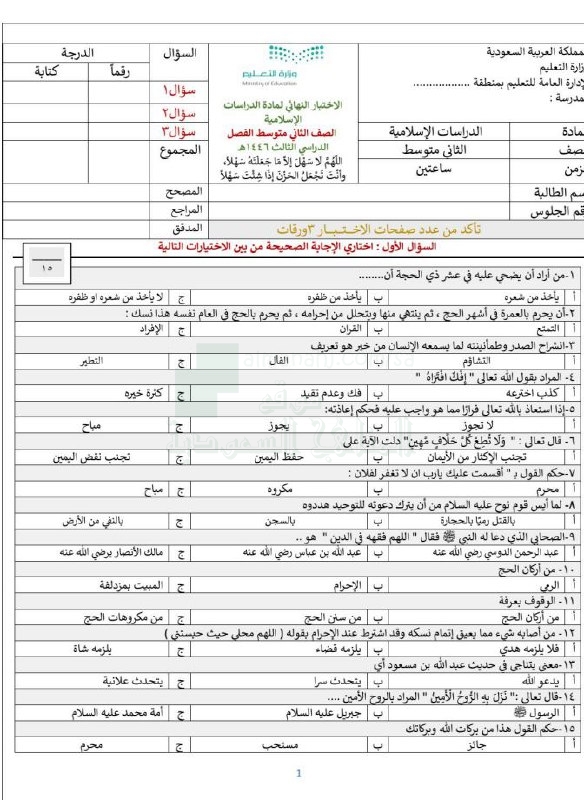 مملكة العربية السعودية
زارة التعليم
لإدارة العامة للتعليم بمنطقة ..................
مدرسة :
وزارة التعليم
Ministry of Education
الاختبار النهائي لمادة الدراسات
الإسلامية
الصف الثاني متوسط الفصل
الدراسي الثالث ١٤٤٦هـ
اللَّهُمَّ لا سَهْلَ إلَّا مَا جَعَلْتَهُ سَهْلاً،
وأنْتَ تَجْعَلُ الحَزْنَ إذَا شِئْتَ سَهْلاً
السؤال الدرجة
رقماً كتابة
سؤال١
سؤال٢
سؤال٣
المجموع
مادة الدراسات الإسلامية
صف الثاني متوسط
زمن ساعتين
سم الطالبة المصحح
قم الجلوس المراجع
تأكد من عدد صفحات الاختبار ٣ورقات المدقق
السؤال الأول : اختاري الإجابة الصحيحة من بين الاختيارات التالية
١٥
١-من أراد أن يضحي عليه في عشر ذي الحجة أن........
أ يأخذ من شعره ب يأخذ من ظفره ج لا يأخذ من شعره او ظفره
٢-أن يحرم بالعمرة في أشهر الحج ، ثم ينتهي منها ويتحلل من إحرامه ، ثم يحرم بالحج في العام نفسه هذا نسك :
أ التمتع ب القران ج الإفراد
٣-انشراح الصدر وطمأنينته لما يسمعه الإنسان من خير هو تعريف
أ التشاؤم ب الفأل ج التطير
٤- المراد بقول الله تعالى " إِفْكٌ افْتَرَاهُ "
أ كذب اخترعه ب فك وعدم تقيد ج كثرة خيره
٥-إذا استعاذ بالله تعالى فرارًا مما هو واجب عليه فحكم إعاذته:
أ لا تجوز ب يجوز ج مباح
٦- قال تعالى : " وَلَا تُطِعْ كُلَّ حَلَّافٍ مَّهِينٍ" دلت الآية على
أ تجنب الإكثار من الأيمان ب حفظ اليمين ج تجنب نقض اليمين
٧-حكم القول بـ " أقسمت عليك يارب ان لا تغفر لفلان :
أ محرم ب مكروه ج مباح
٨- لما أيس قوم نوح عليه السلام من أن يترك دعوته للتوحيد هددوه
أ بالقتل رميًا بالحجارة ب بالسجن ج بالنفي من الأرض
٩-الصحابي الذي دعا له النبي ﷺ فقال " اللهم فقهه في الدين " هو ..
أ عبد الرحمن الدوسي رضي الله عنه ب عبد الله بن عباس رضي الله عنه ج مالك الأنصار يرضي الله عنه
١٠- من أركان الحج
أ الرمي ب الإحرام ج المبيت بمزدلفة
١١- الوقوف بعرفة
أ من أركان الحج ب من سنن الحج ج من مكروهات الحج
١٢- من أصابه شيء مما يعيق إتمام نسكه وقد اشترط عند الإحرام بقوله ( اللهم محلي حيث حبستني )
أ فلا يلزمه هدي ب يلزمه قضاء ج يلزمه شاة
١٣-معنى يتناجى في حديث عبد الله بن مسعود أي
أ يدعو الله ب يتحدث سرا ج يتحدث علانية
١٤-قال تعالى :" نَزَلَ بِهِ الرُّوحُ الْأَمِينُ " المراد بالروح الأمين ....
أ الرسول ﷺ ب جبريل عليه السلام ج أمة محمد عليه السلام
١٥-حكم القول هذا من بركات الله وبركاتك
أ جائز ب مستحب ج محرم
1